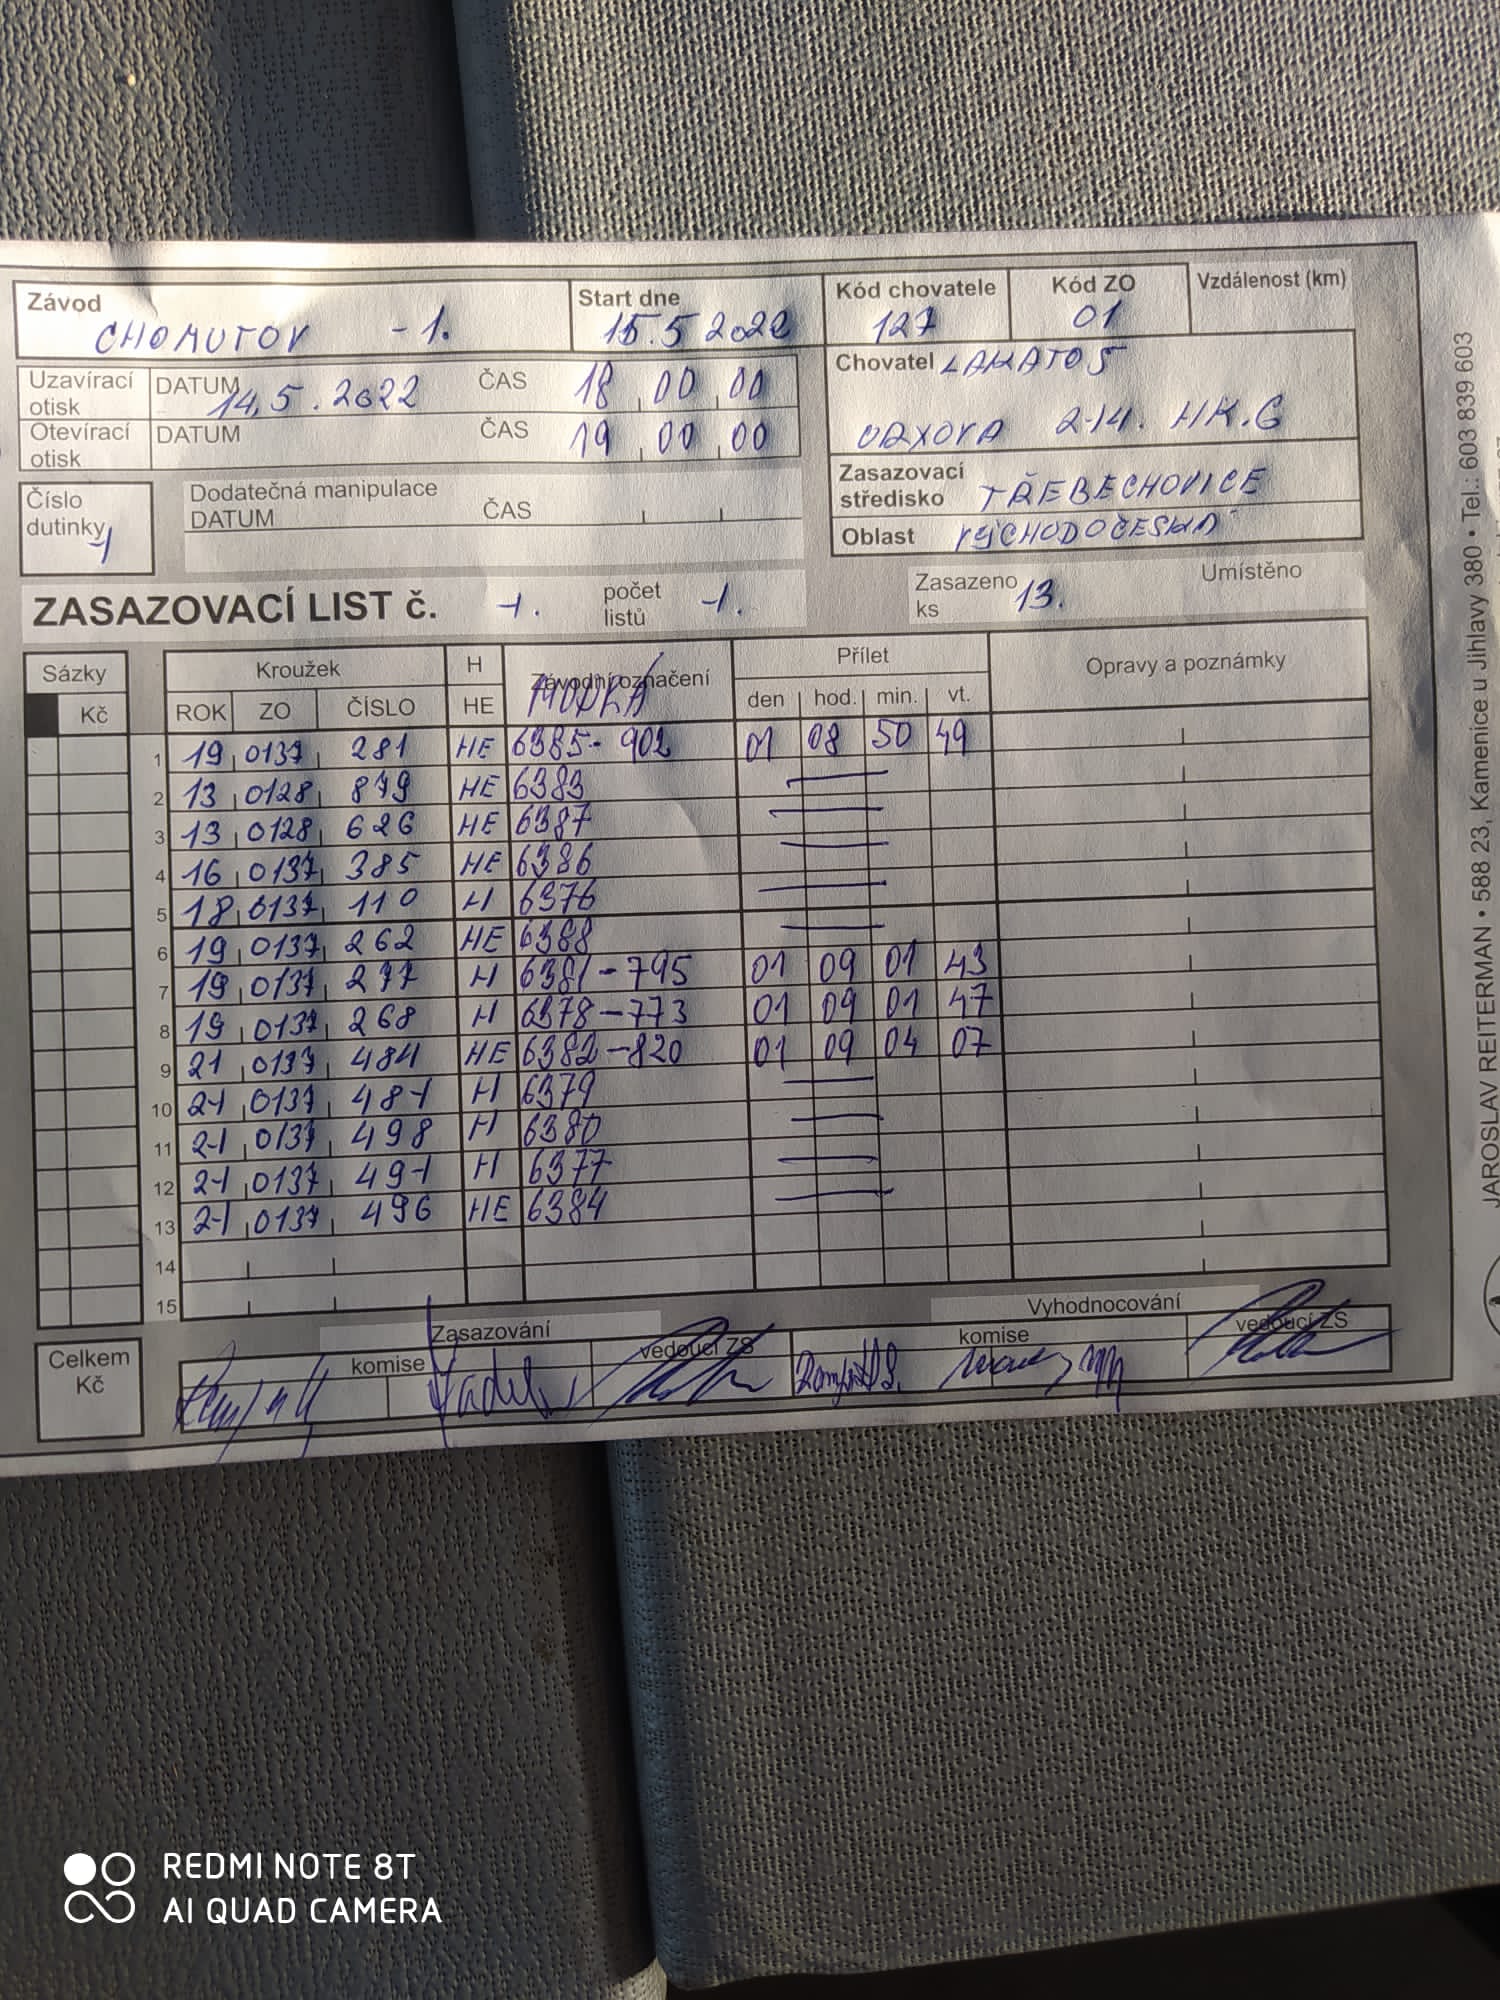 Závod CHOMUTOV -1. Start dne 15.5 2022 Kód chovatele 127 Kód ZO 01 Vzdálenost (km)
Uzavírací otisk DATUM 14,5.2022 ČAS 18 00 00
Otevírací otisk DATUM ČAS 19 00 00
Chovatel LAKATOŠ
214. HK.6
Číslo dutinky 1
Dodatečná manipulace
DATUM ČAS
Zasazovací středisko TŘEBECHOVICE
Oblast VÝCHODOČESKÁ
ZASAZOVACÍ LIST č. 1. počet listů 1. Zasazeno ks 13. Umístěno
Sázky Kroužek H Závodní označení Přílet Opravy a poznámky
Kč ROK ZO ČÍSLO HE MODRÁ den hod. min. vt.
1 19 0137 281 HE 6385-902 01 08 50 49
2 13 0128 879 HE 6383
3 13 0128 626 HE 6387
4 16 0137 385 HE 6386
5 18 0137 110 H 6376
6 19 0137 262 HE 6388
7 19 0137 277 H 6381-795 01 09 01 43
8 19 0137 268 H 6378-773 01 09 01 47
9 21 0137 484 HE 6382-820 01 09 04 07
10 21 0137 481 H 6379
11 21 0137 498 H 6380
12 21 0137 491 H 6377
13 21 0137 496 HE 6384
14
15
Celkem Kč
Zasazování Vyhodnocování
komise vedoucí ZS komise vedoucí ZS
JAROSLAV REITERMAN • 588 23, Kamenice u Jihlavy 380 • Tel.: 603 839 603
REDMI NOTE 8T
AI QUAD CAMERA